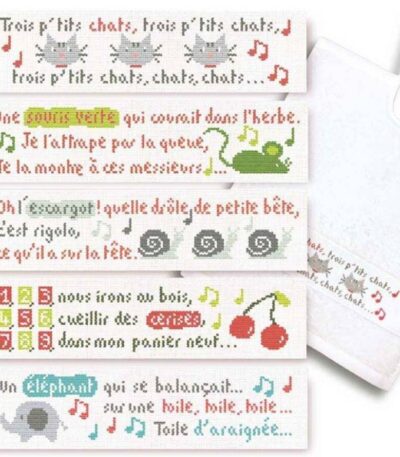 Trois p'tits chats, trois p'tits chats,
trois p'tits chats, chats, chats...
Une souris verte qui courait dans l'herbe.
Je l'attrape par la queue,
Je la montre à ces messieurs...
Oh! l'escargot! quelle drôle, de petite bête,
c'est rigolo,
ce qu'il a sur la tête.
1 2 3 nous irons au bois,
4 5 6 cueillir des cerises,
7 8 9 dans mon panier neuf...
Un éléphant qui se balançait...
sur une toile, toile, toile...
Toile d'araignée...
chats, trois p'tits chats,
chats, chats...